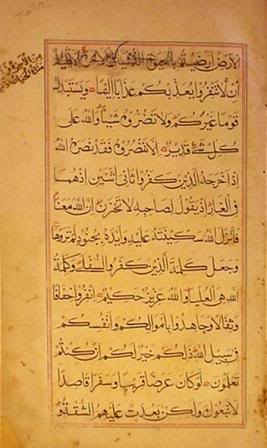 الارض ارضيتم بالحيوة الدنيا في الاخرة الا قليل
الا تنفروا يعذبكم عذابا اليما ويستبدل
قوما غيركم ولا تضروه شيئا والله على
كل شئ قدير الا تنصروه فقد نصره الله
اذ اخرجه الذين كفروا ثاني اثنين اذهما
في الغار اذ يقول لصاحبه لا تحزن ان الله معنا
فانزل الله سكينته عليه وايده بجنود لم تروها
وجعل كلمة الذين كفروا السفلى وكلمة
الله هي العليا والله عزيز حكيم انفروا خفافا
وثقالا وجاهدوا باموالكم وانفسكم
في سبيل الله ذلكم خير لكم ان كنتم
تعلمون لو كان عرضا قريبا وسفرا قاصدا
لاتبعوك ولكن بعدت عليهم الشقة و